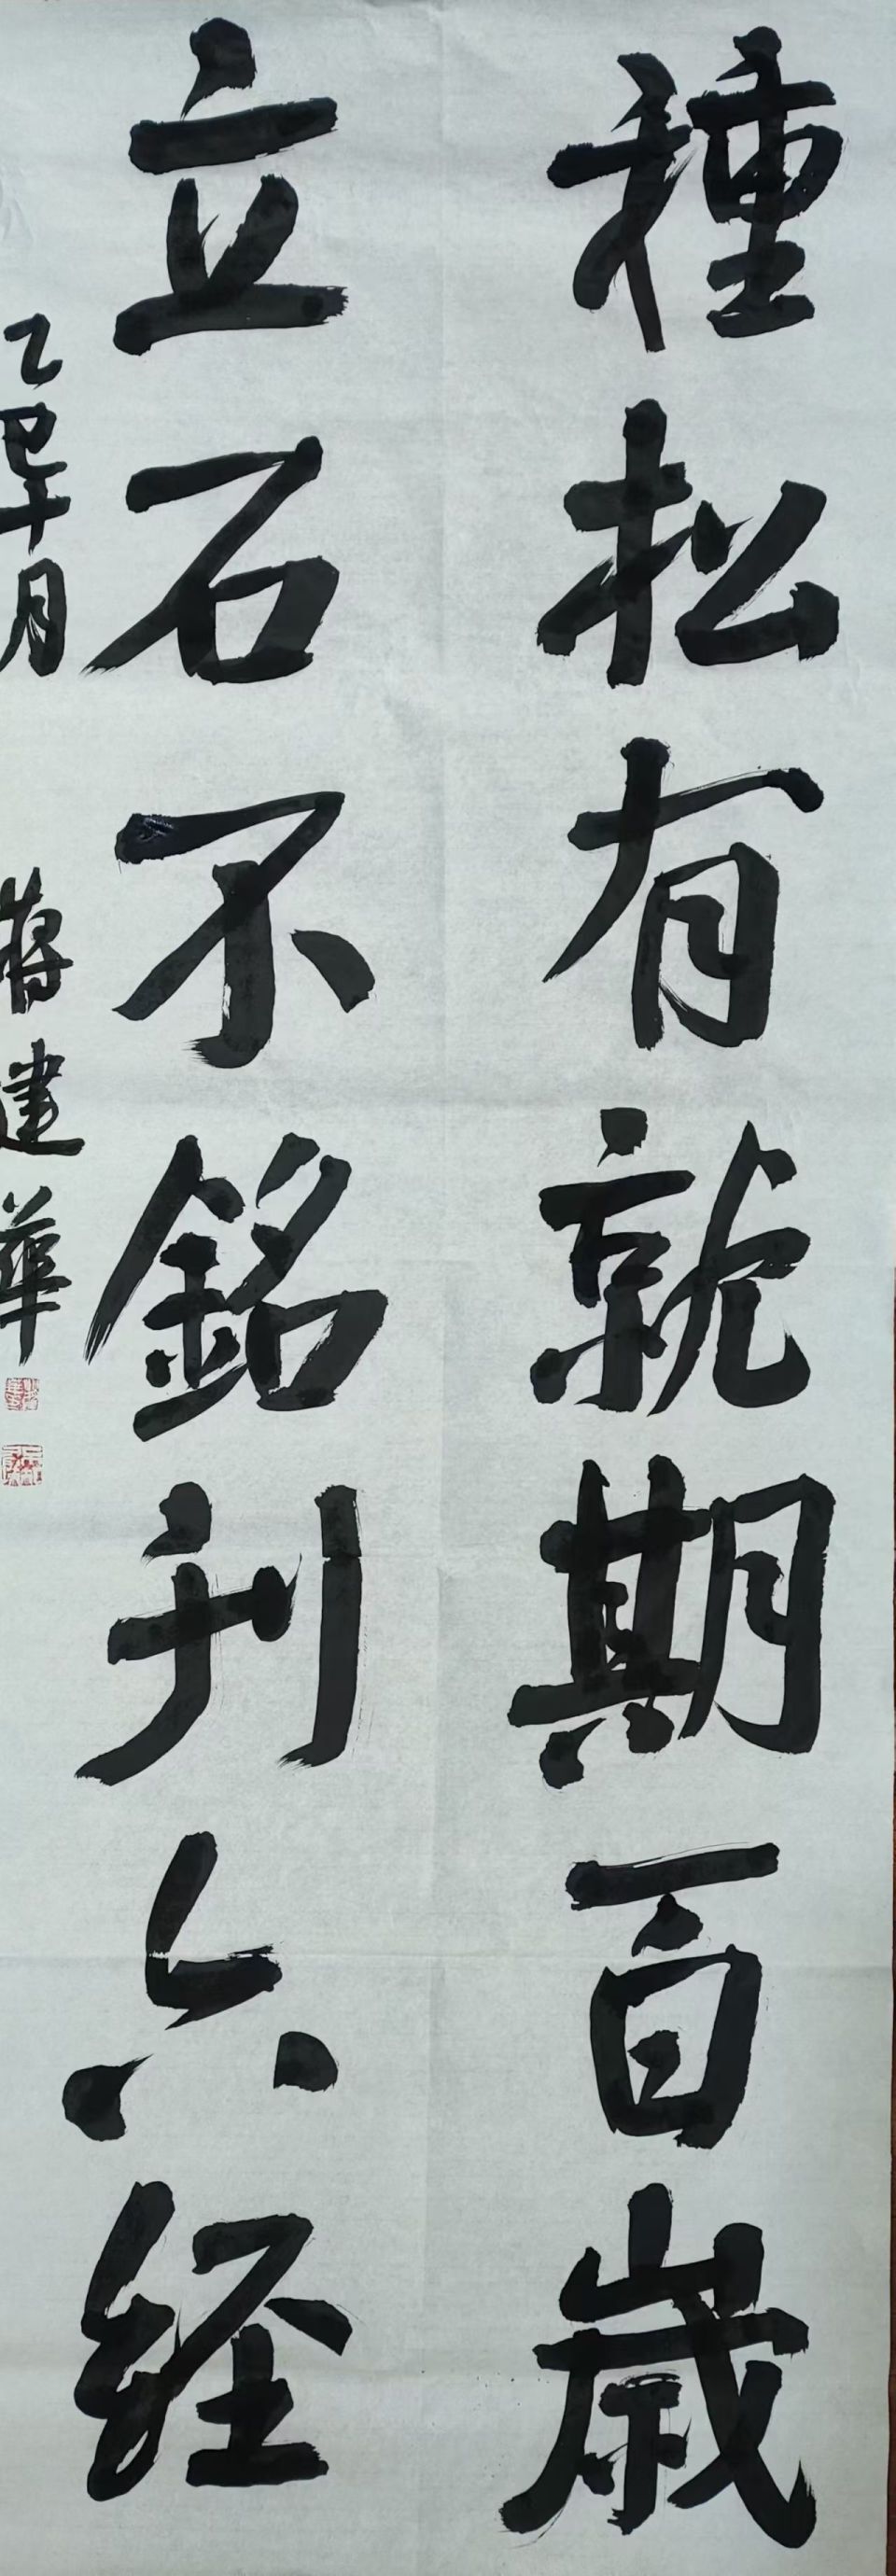 種松有就期百歲
立石不銘刊六经
乙巳十月 蒋建華